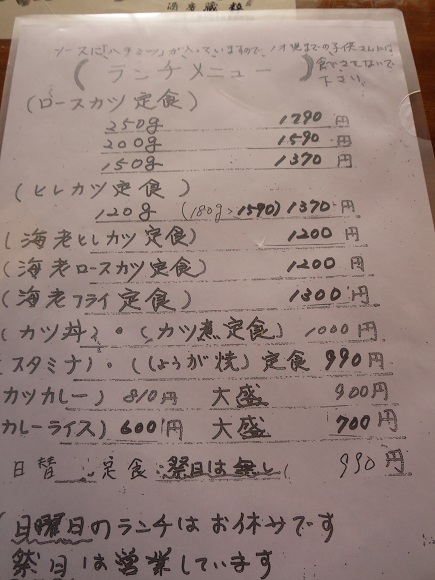 ソースに「ハチミツ」が入っていますので、1才児までの子供さんには
食べさせないで
下さい。
(ランチメニュー)
(ロースカツ定食)
250g 1790円
200g 1590円
150g 1370円
(ヒレカツ定食)
120g (180g>1590) 1370円
(海老ヒレカツ定食) 1200円
(海老ロースカツ定食) 1200円
(海老フライ定食) 1300円
(カツ丼)・(カツ煮定食) 1000円
(スタミナ)・(しょうが焼)定食 990円
カツカレー) 810円 大盛 900円
カレーライス) 600円 大盛 700円
日替 定食 祭日は無し( 990円
(日曜日のランチはお休みです
祭日は営業しています